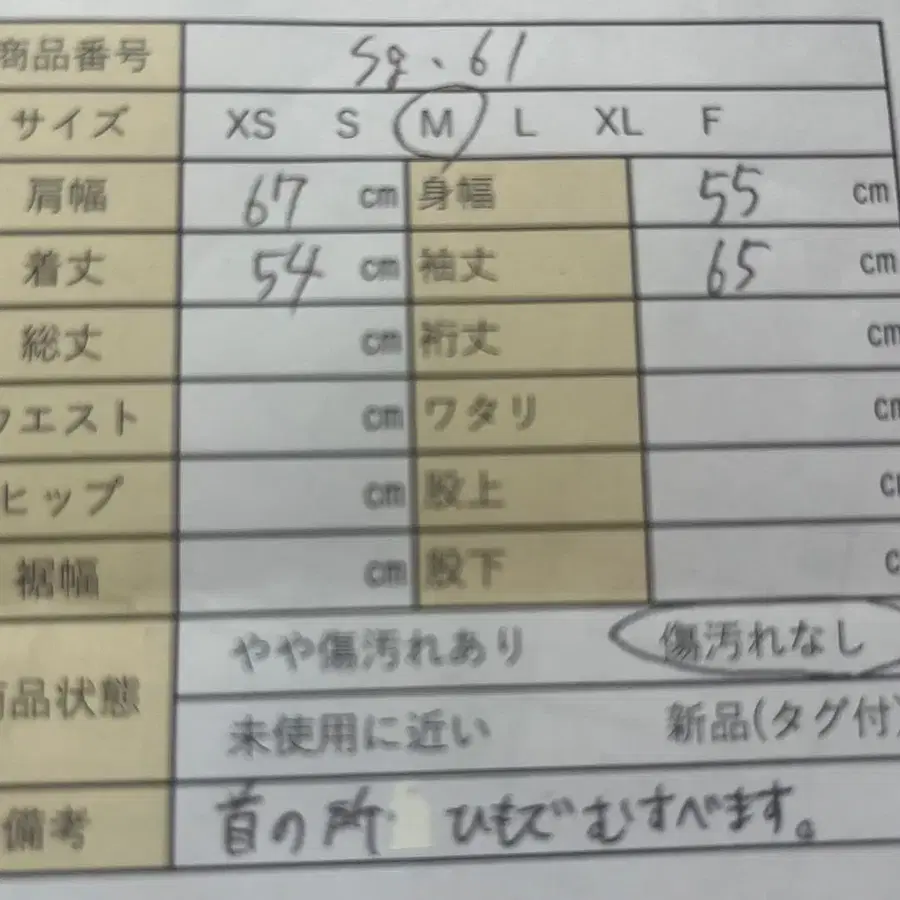 商品番号 Sg.61
サイズ XS S M L XL F
肩幅 67 cm 身幅 55 cm
着丈 54 cm 袖丈 65 cm
総丈 cm 裄丈 cm
ウエスト cm ワタリ cm
ヒップ cm 股上 cm
裾幅 cm 股下 c
商品状態 やや傷汚れあり 傷汚れなし
未使用に近い 新品(タグ付)
備考 首の所 ひもでむすべます。